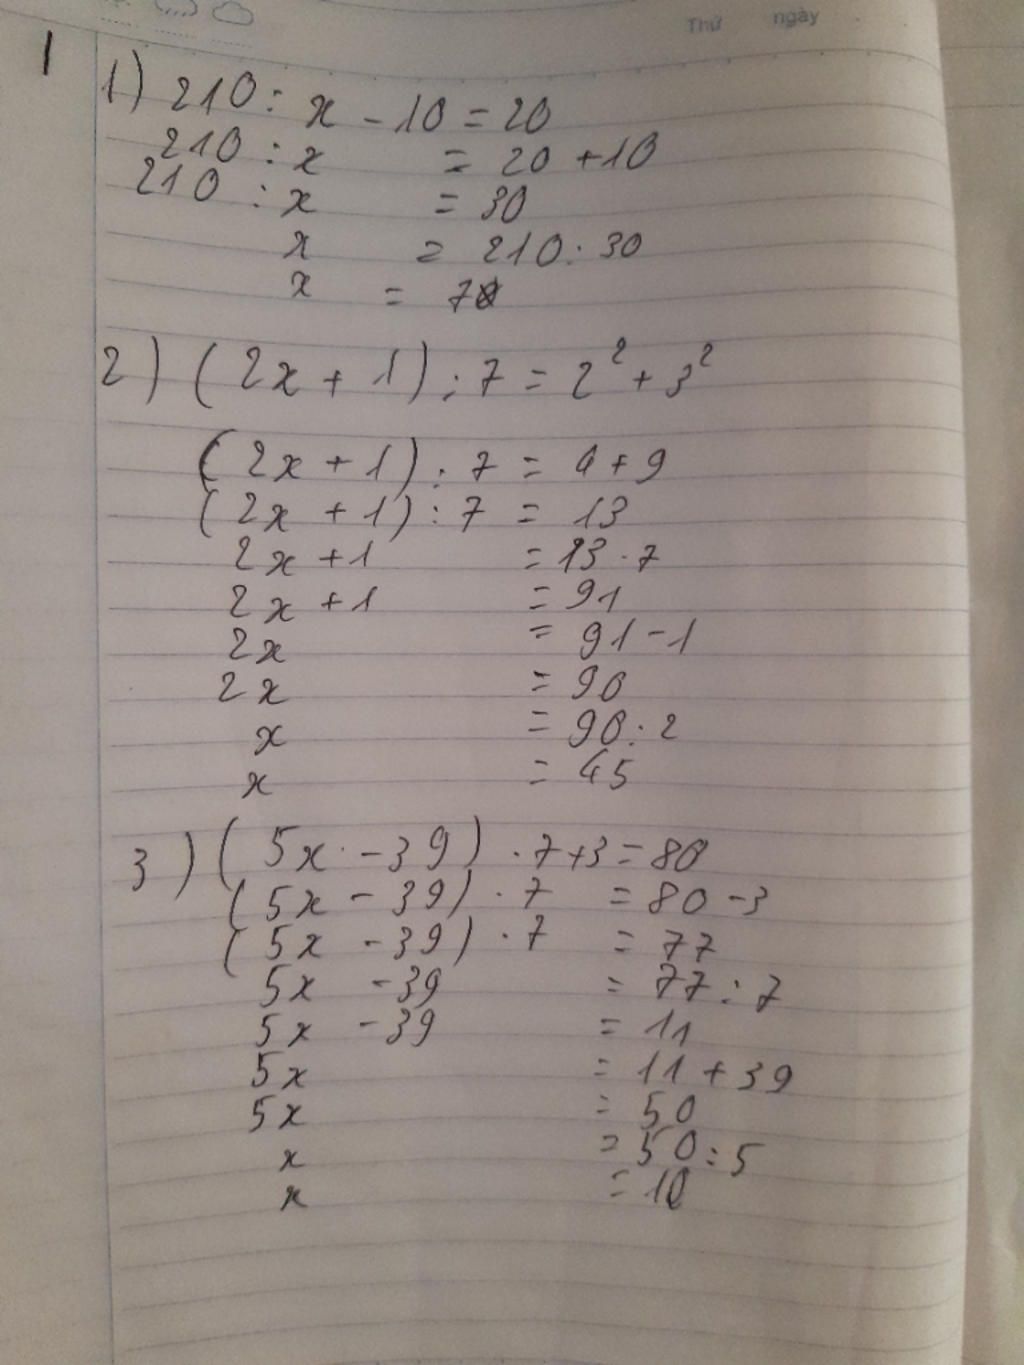 Thứ ngày
1
1) 210 : x - 10 = 20
210 : x = 20 + 10
210 : x = 30
x = 210 : 30
x = 7
2) (2x + 1) : 7 = 2² + 3²
(2x + 1) : 7 = 4 + 9
(2x + 1) : 7 = 13
2x + 1 = 13 . 7
2x + 1 = 91
2x = 91 - 1
2x = 90
x = 90 : 2
x = 45
3) (5x - 39) . 7 + 3 = 80
(5x - 39) . 7 = 80 - 3
(5x - 39) . 7 = 77
5x - 39 = 77 : 7
5x - 39 = 11
5x = 11 + 39
5x = 50
x = 50 : 5
x = 10